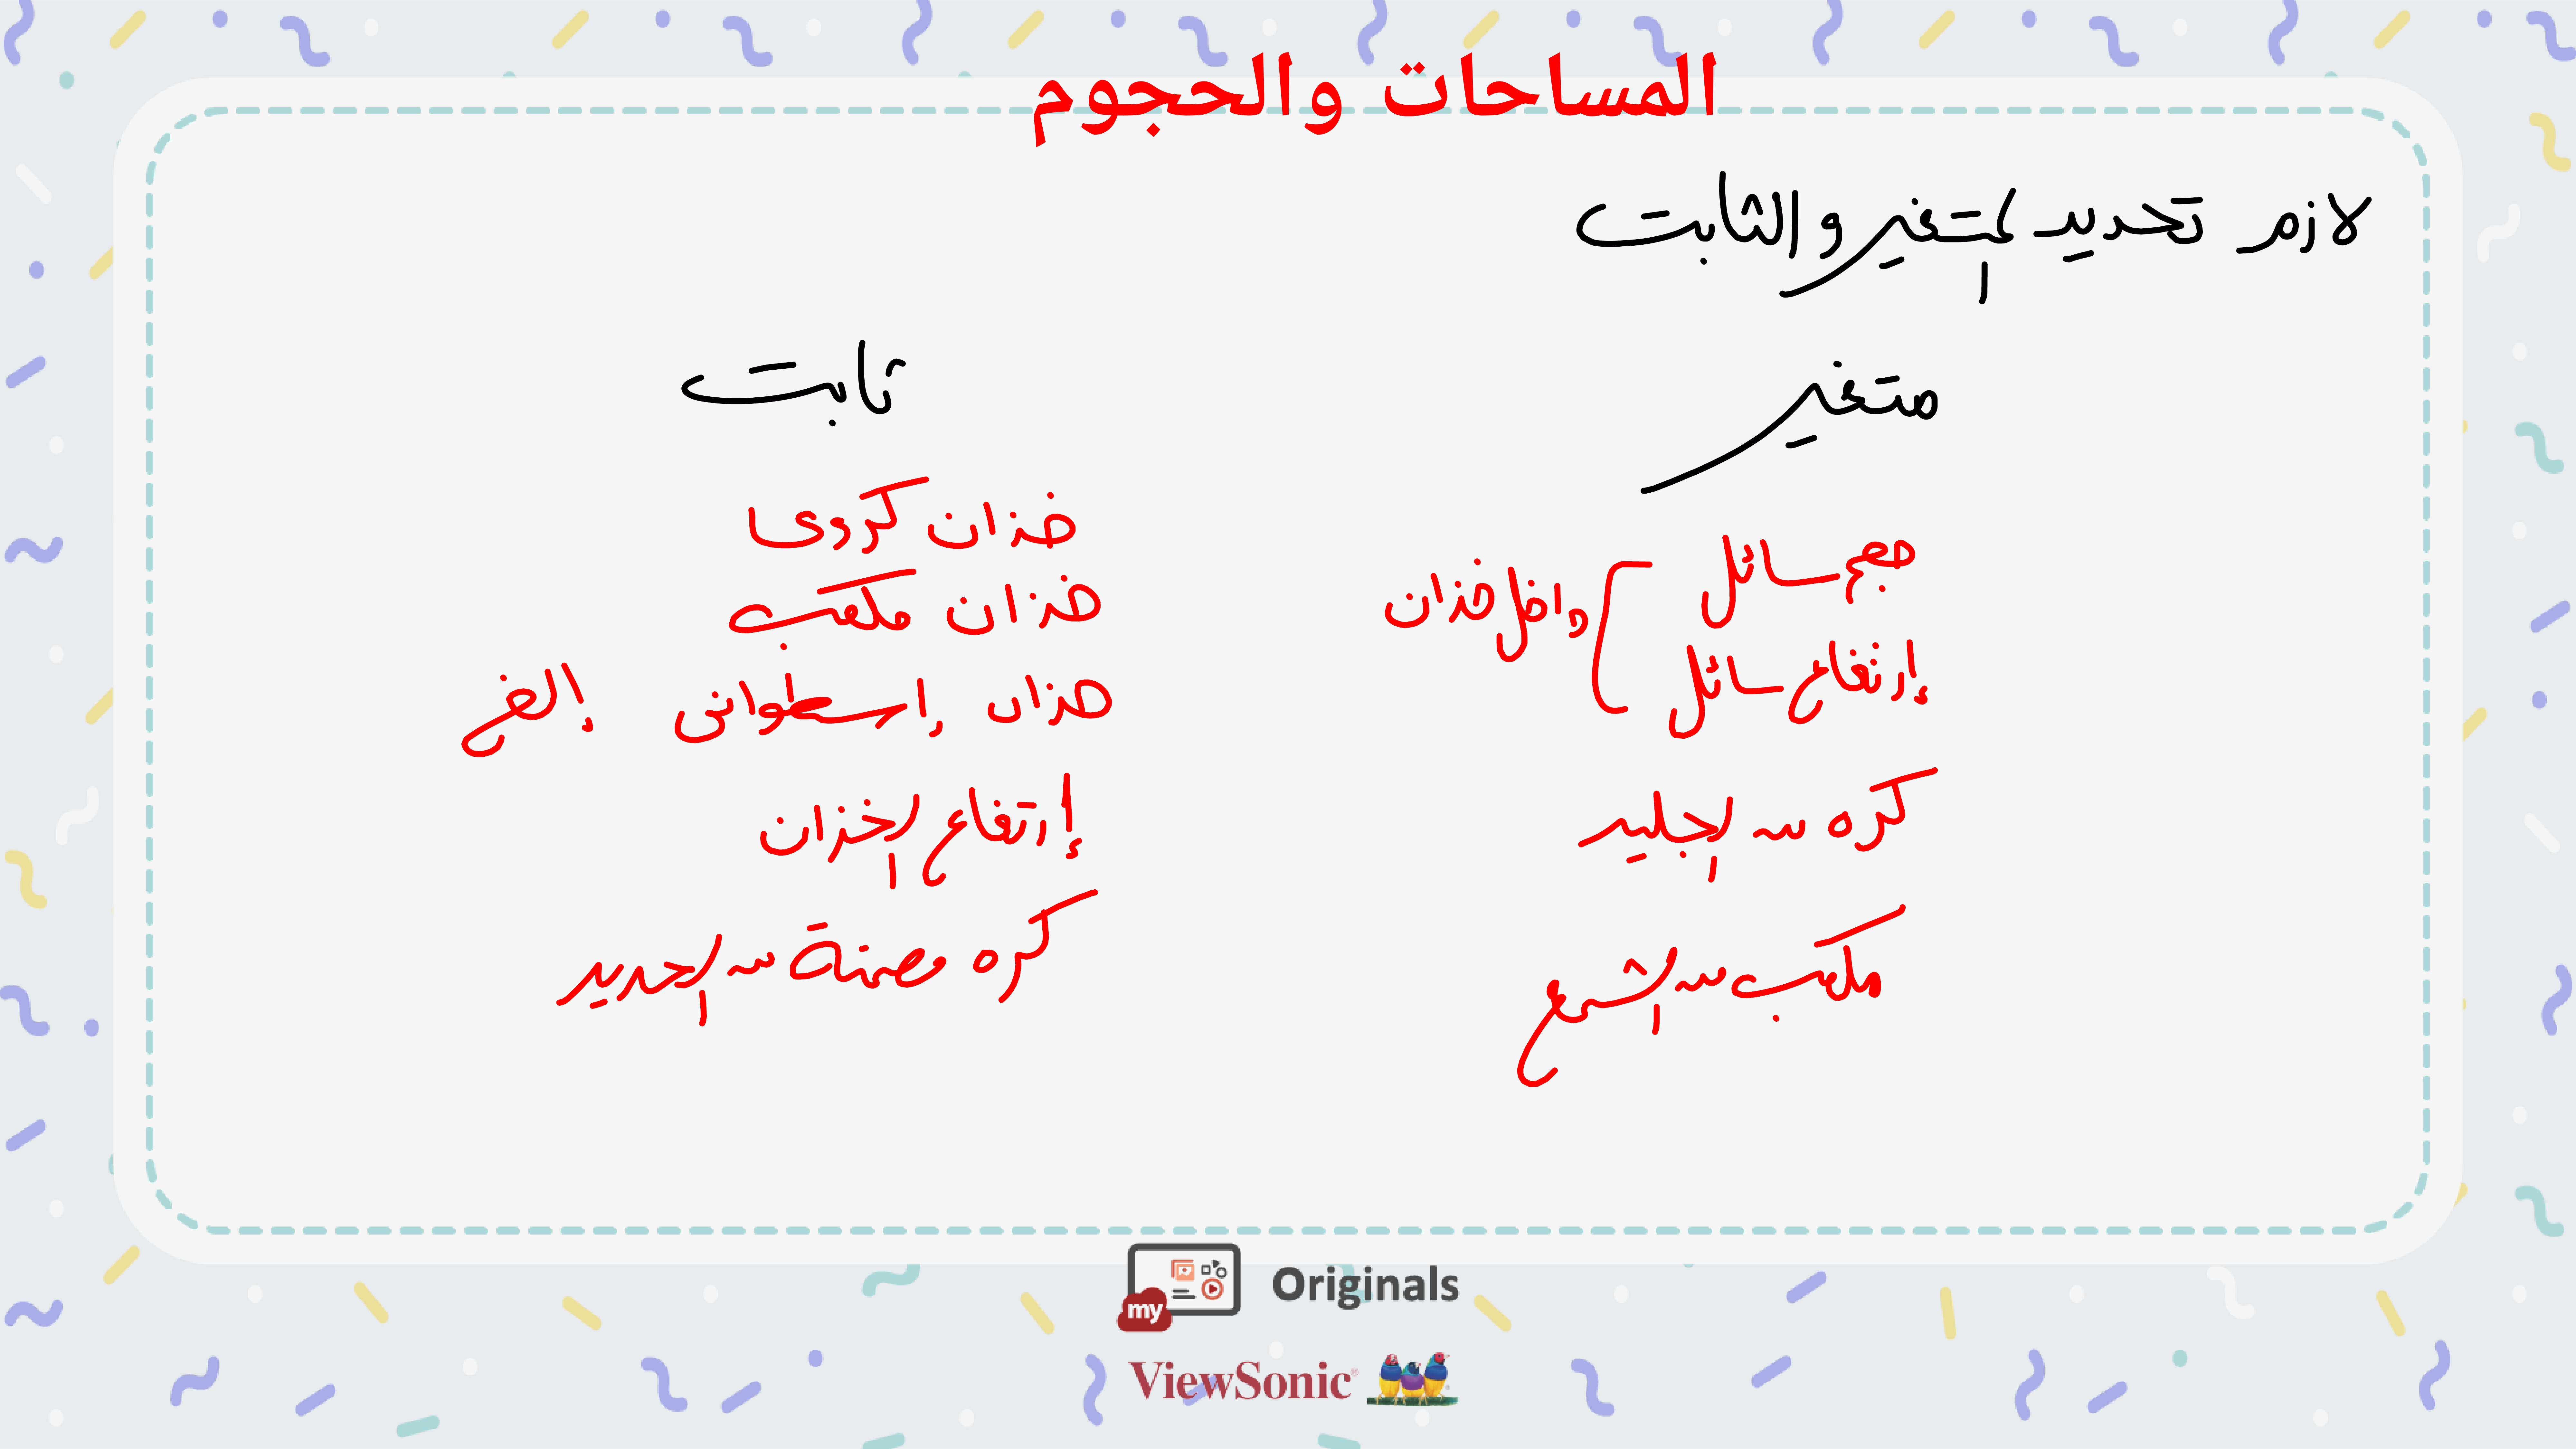 المساحات والحجوم
لازم تحديد المتغير والثابت
متغير
حجم سائل
إرتفاع سائل
داخل خزان
كره من الجليد
مكعب من الشمع
ثابت
خزان كروى
خزان مكعب
خزان إسطوانى إلخ
إرتفاع الخزان
كره مصنة من الحديد
my Originals
ViewSonic